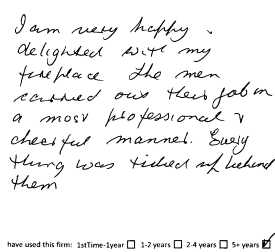 I am very happy &
delighted with my
fireplace The men
carried out their job in
a most professional &
cheerful manner. Every
thing was tidied up behind
them
have used this firm: 1stTime-1year ☐ 1-2 years ☐ 2-4 years ☐ 5+ years ☑